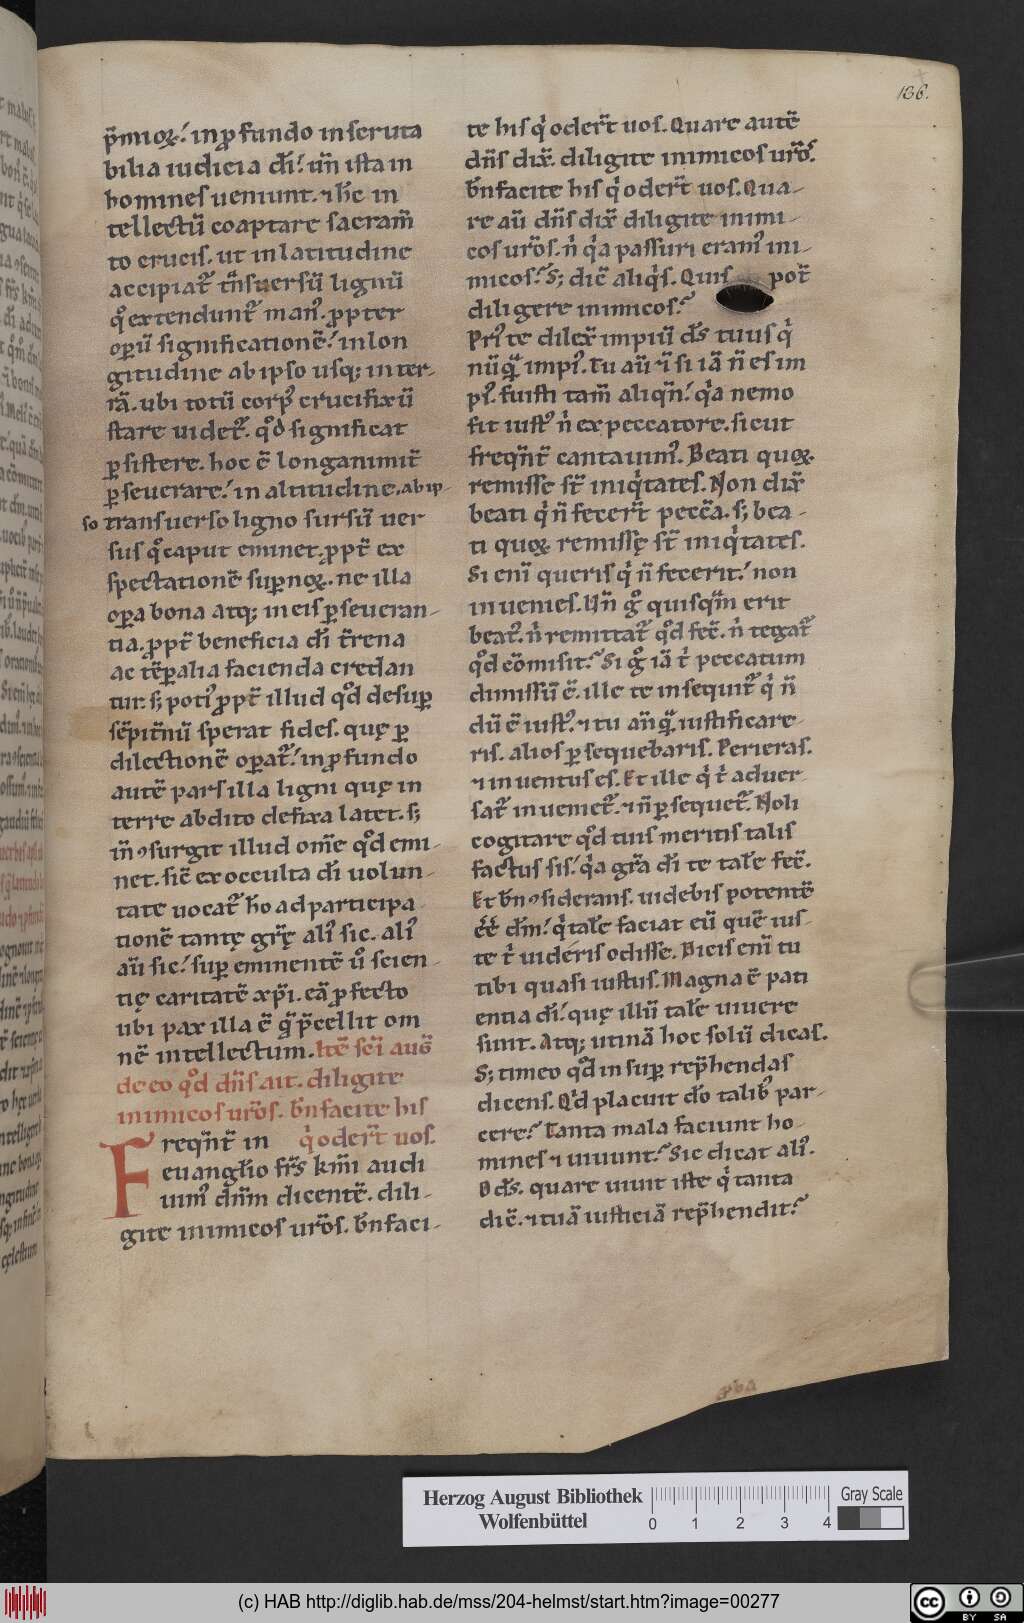 136.
p̄mioꝝ. in ꝓfundo inscruta
bilia iudicia dī. un̄ ista in
homines ueniunt. ⁊ h̄c in
tellectū coaptare sacram̄
to crucis. ut in latitudine
accipiat᷑ tn̄suersū lignū
qͦ extendunt᷑ manꝰ. ꝓpter
oꝑū significationē. in lon
gitudine ab ipso usq; in ter
rā. ubi totū corpꝰ crucifixū
stare uidet᷑. qͦd significat
ꝑsistere. hoc ē longanimit̄
ꝑseuerare. in altitudine. ab ip
so transuerso ligno sursū uer
sus qͦ caput eminet. ꝓpt̄ ex
spectationē suꝑnoꝝ. ne illa
oꝑa bona atq; in eis ꝑseueran
tia. ꝓpt̄ beneficia dī t̄rena
ac tēꝑalia facienda credan
tur. s; potiꝰ ꝓpt̄ illud qͦd desuꝑ
sēpit̄nū sperat fides. quę ꝑ
dilectionē oꝑat᷑. in ꝓfundo
autē pars illa ligni quę in
terre abdito defixa latet. s;
in̄ ꝯsurgit illud om̄e qͦd emi
net. sic̄ ex occulta dī uolun
tate uocat᷑ h̄o ad participa
tionē tantę gr̄ę aliꝰ sic. aliꝰ
aū sic. suꝑeminentē ū scien
tię caritatē xp̄i. eā ꝓfecto
ubi pax illa ē q̄ p̄cellit om
nē intellectum. Itē sc̄i auḡ
de eo qͦd dn̄s ait. diligite
inimicos ur̄os. bn̄facite his
qͥ oder̄t uos.
Freqn̄t in
euanglio fr̄s km̄i audi
uimꝰ dn̄m dicentē. dili
gite inimicos ur̄os. bn̄faci
te his qͥ oder̄t uos. Quare autē
dn̄s dix̄. diligite inimicos ur̄os.
bn̄facite his qͥ oder̄t uos. Qua
re aū dn̄s dix̄ diligite inimi
cos ur̄os. n̄ qͥa passuri eramꝰ ini
micos? S; dic̄ aliqͥs. Quis pot̄
diligere inimicos?
Priꝰ te dilex̄ impiū ds̄ tuus qͥ
nūq̄ impiꝰ. Tu aū ⁊ si iā n̄ es im
piꝰ. fuisti tam̄ aliqn̄. qͥa nemo
fit iustꝰ n̄ ex peccatore. sicut
freqn̄t̄ cantauimꝰ. Beati quoꝝ
remisse st̄ iniqͥtates. Non dix̄
beati qͥ n̄ fecer̄t pecc̄a. s; bea
ti quoꝝ remissę st̄ iniqͥtates.
Si eni queris qͥ n̄ fecerit. non
inuenies. Un̄ gͦ quisqm̄ erit
beatꝰ. n̄ remittat᷑ qͦd fec̄. n̄ tegat᷑
qͦd cōmisit? Si gͦ iā tͥ peccatum
dimissū ē. ille te insequit᷑ qͥ n̄
dū ē iustꝰ. ⁊ tu an̄q̄ iustificare
ris. alios ꝑsequebaris. Perieras.
⁊ inuentus es. Et ille qͥ tͥ aduer
sat᷑ inueniet᷑. ⁊ n̄ ꝑsequet᷑. Noli
cogitare qͦd tuis meritis talis
factus sis. qͥa gr̄a dī te tale fec̄.
Et bn̄ ꝯsiderans. uidebis potentē
eē dm̄. qͥ tale faciat eū quē ius
te tͥ uideris odisse. Dicis enī tu
tibi quasi iustus. Magna ē pati
entia dī. quę illū tale uiuere
sinit. Atq; utinā hoc solū dicas.
S; timeo qͦd insuꝑ rep̄hendas
dicens. Qͥd placuit do talibꝰ par
cere? Tanta mala faciunt ho
mines ⁊ uiuunt? Sic dicat aliꝰ.
O ds̄. quare uiuit iste qͥ tanta
dic̄. ⁊ tuā iusticiā rep̄hendit?
Herzog August Bibliothek
Wolfenbüttel
0 1 2 3 4
Gray Scale
(c) HAB http://diglib.hab.de/mss/204-helmst/start.htm?image=00277
cc BY SA